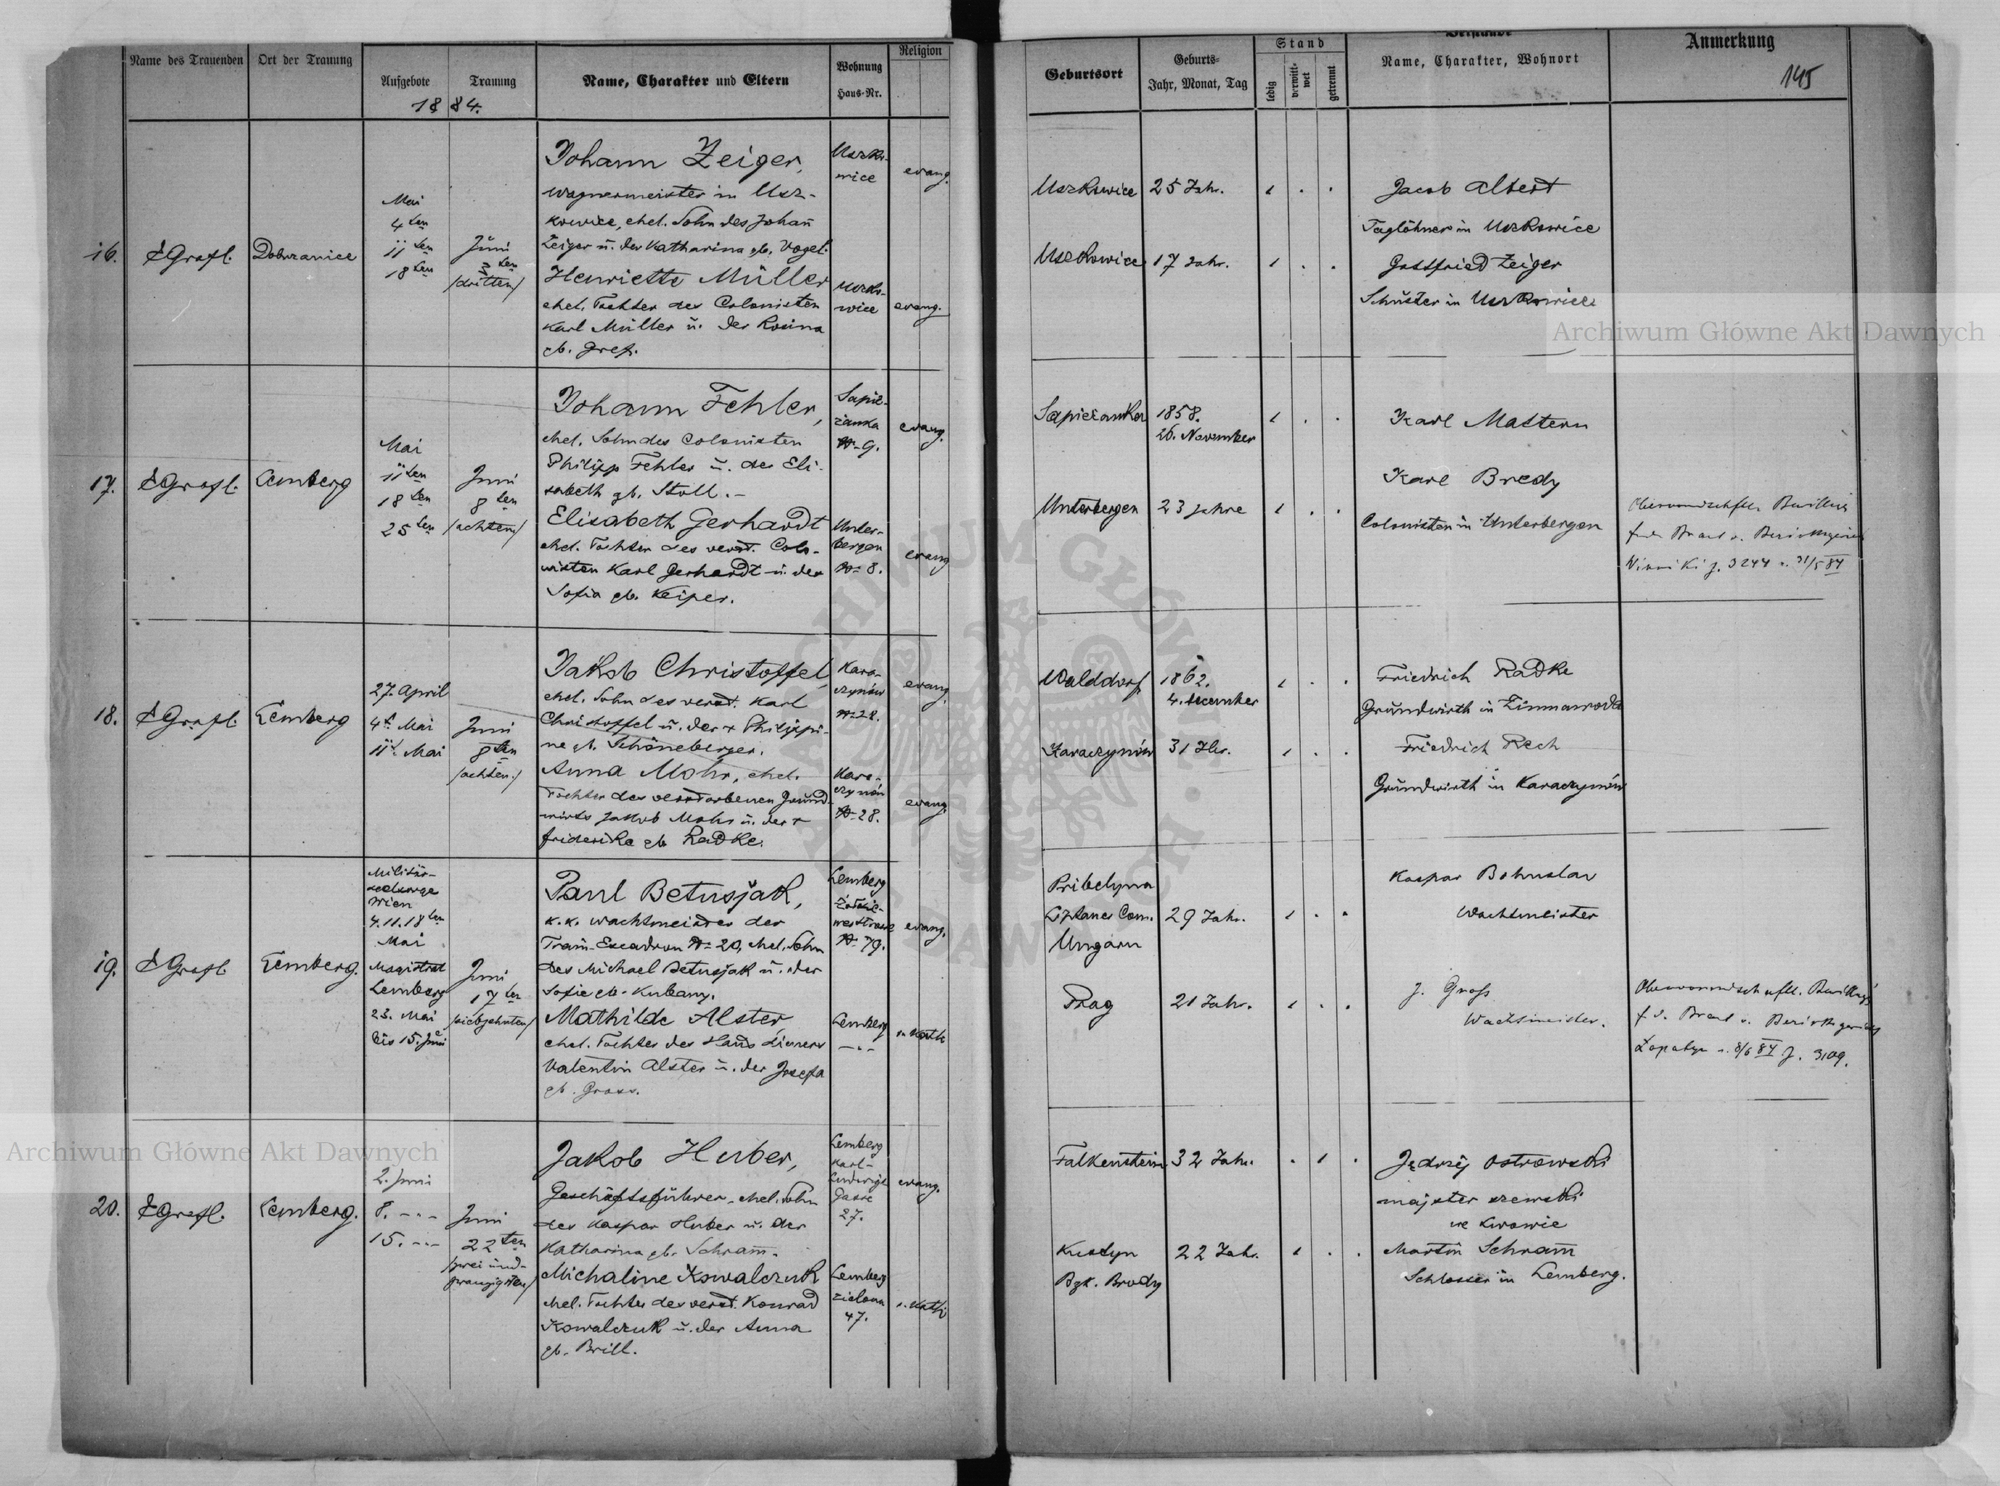 Name des Trauenden
Ort der Trauung
Aufgebote
Trauung
1884.
Name, Charakter und Eltern
Wohnung
Haus-Nr.
Religion
Geburtsort
Geburts-
Jahr, Monat, Tag
Stand
ledig
verwitt-
wet
getrennt
Beistände
Name, Charakter, Wohnort
Anmerkung
145
16.
Grafl.
Dobrzanice
Mai
4ten
11ten
18ten
Juni
3ten
/dritten/
Johann Zeiger,
Wagnermeister in Usz-
kowice, ehel. Sohn des Johañ
Zeiger u. der Katharina gb. Vogel.
Henriette Müller
ehel. Tochter des Colonisten
Karl Müller u. der Rosina
gb. Gref.
Uszko-
wice
evang.
Uszko-
wice
evang.
Uszkowice
25 Jahr.
Jacob Albert
Taglöhner in Uszkowice
Uszkowice
17 Jahr.
Gottfried Zeiger
Schuster in Uszkowice
17.
Grafl.
Lemberg
Mai
11ten
18ten
25ten
Juni
8ten
/achten/
Johann Fehler,
ehel. Sohn des Colonisten
Philipp Fehler u. der Eli-
sabeth gb. Stoll.-
Elisabeth Gerhardt
ehel. Tochter des verst. Colo-
nisten Karl Gerhardt u. der
Sofia gb. Keiper.
Sapie-
żanka
№ 9.
evang.
Unter-
bergen
№ 8.
evang
Sapieżanka
1858.
26. November
Karl Mattern
Unterbergen
23 Jahre
Karl Bredy
Colonisten in Unterbergen
Obervormdschftl. Bewillig
für Braut v. Bezirksgericht
Winniki z. 3244 v. 31/5 84
18.
Grafl.
Lemberg
27. April
4t. Mai
11t. Mai
Juni
8ten
/achten./
Jakob Christoffel,
ehel. Sohn des verst. Karl
Christoffel u. der + Philippi-
ne gb. Schöneberger.
Anna Mohr, ehel.
Tochter des verstorbenen Grund-
wirts Jakob Mohr u. der +
Friderike gb Radke.
Kara-
czynów
№ 28.
evang.
Kara-
czynów
№ 28.
evang.
Walddorf
1862.
4. December
Friedrich Radke
Grundwirth in
Karaczynów
31 Jhr.
Friedrich Rech
Grundwirth in Karaczynów
19.
Grafl
Lemberg.
Militär-
seelsorge
Wien
4. 11. 18ten
Mai
Magistrat
Lemberg
23. Mai
bis 15. Juni
Juni
17ten
/siebzehnten/
Paul Betusjak,
k.k. Wachtmeister der
Train-Escadron № 20, ehel. Sohn
des Michael Betusjak u. der
Sofie gb. Kubany.
Mathilde Alster,
ehel. Tochter des Haus dieners
Valentin Alster u. der Josefa
gb. Gross.
Lemberg
№ 79.
evang.
Lemberg
r. kath
Pribelyna
Liptauer Com.
Ungarn
29 Jahr.
Kaspar Bohuslav
Wachtmeister
Prag
21 Jahr.
J. Gross
Wachtmeister.
Obervormdschaftl. Bewillig
f. d. Braut v. Bezirksgericht
Łopatyn v. 8/6 84 z. 3109.
20.
Grafl.
Lemberg.
2. Juni
8. -"-
15. -"-
Juni
22ten
/zwei und-
zwanzigsten/
Jakob Huber,
Geschäftsführer, ehel. Sohn
des Kaspar Huber u. der
Katharina gb. Schram̄.
Michaline Kowalczuk
ehel. Tochter des verst. Konrad
Kowalczuk u. der Anna
gb. Brill.
Lemberg
Karl-
Ludwigs
Gasse
27.
evang.
Lemberg
Zielona
47.
r. kath
Falkenstein
32 Jahr.
Jędrzej Ostrowski
majster szewski
we Lwowie
22 Jahr.
Bzk. Brody
Martin Schram̄
Schlosser in Lemberg.
Archiwum Główne Akt Dawnych
Archiwum Główne Akt Dawnych
ARCHIWUM GŁÓWNE AKT DAWNYCH